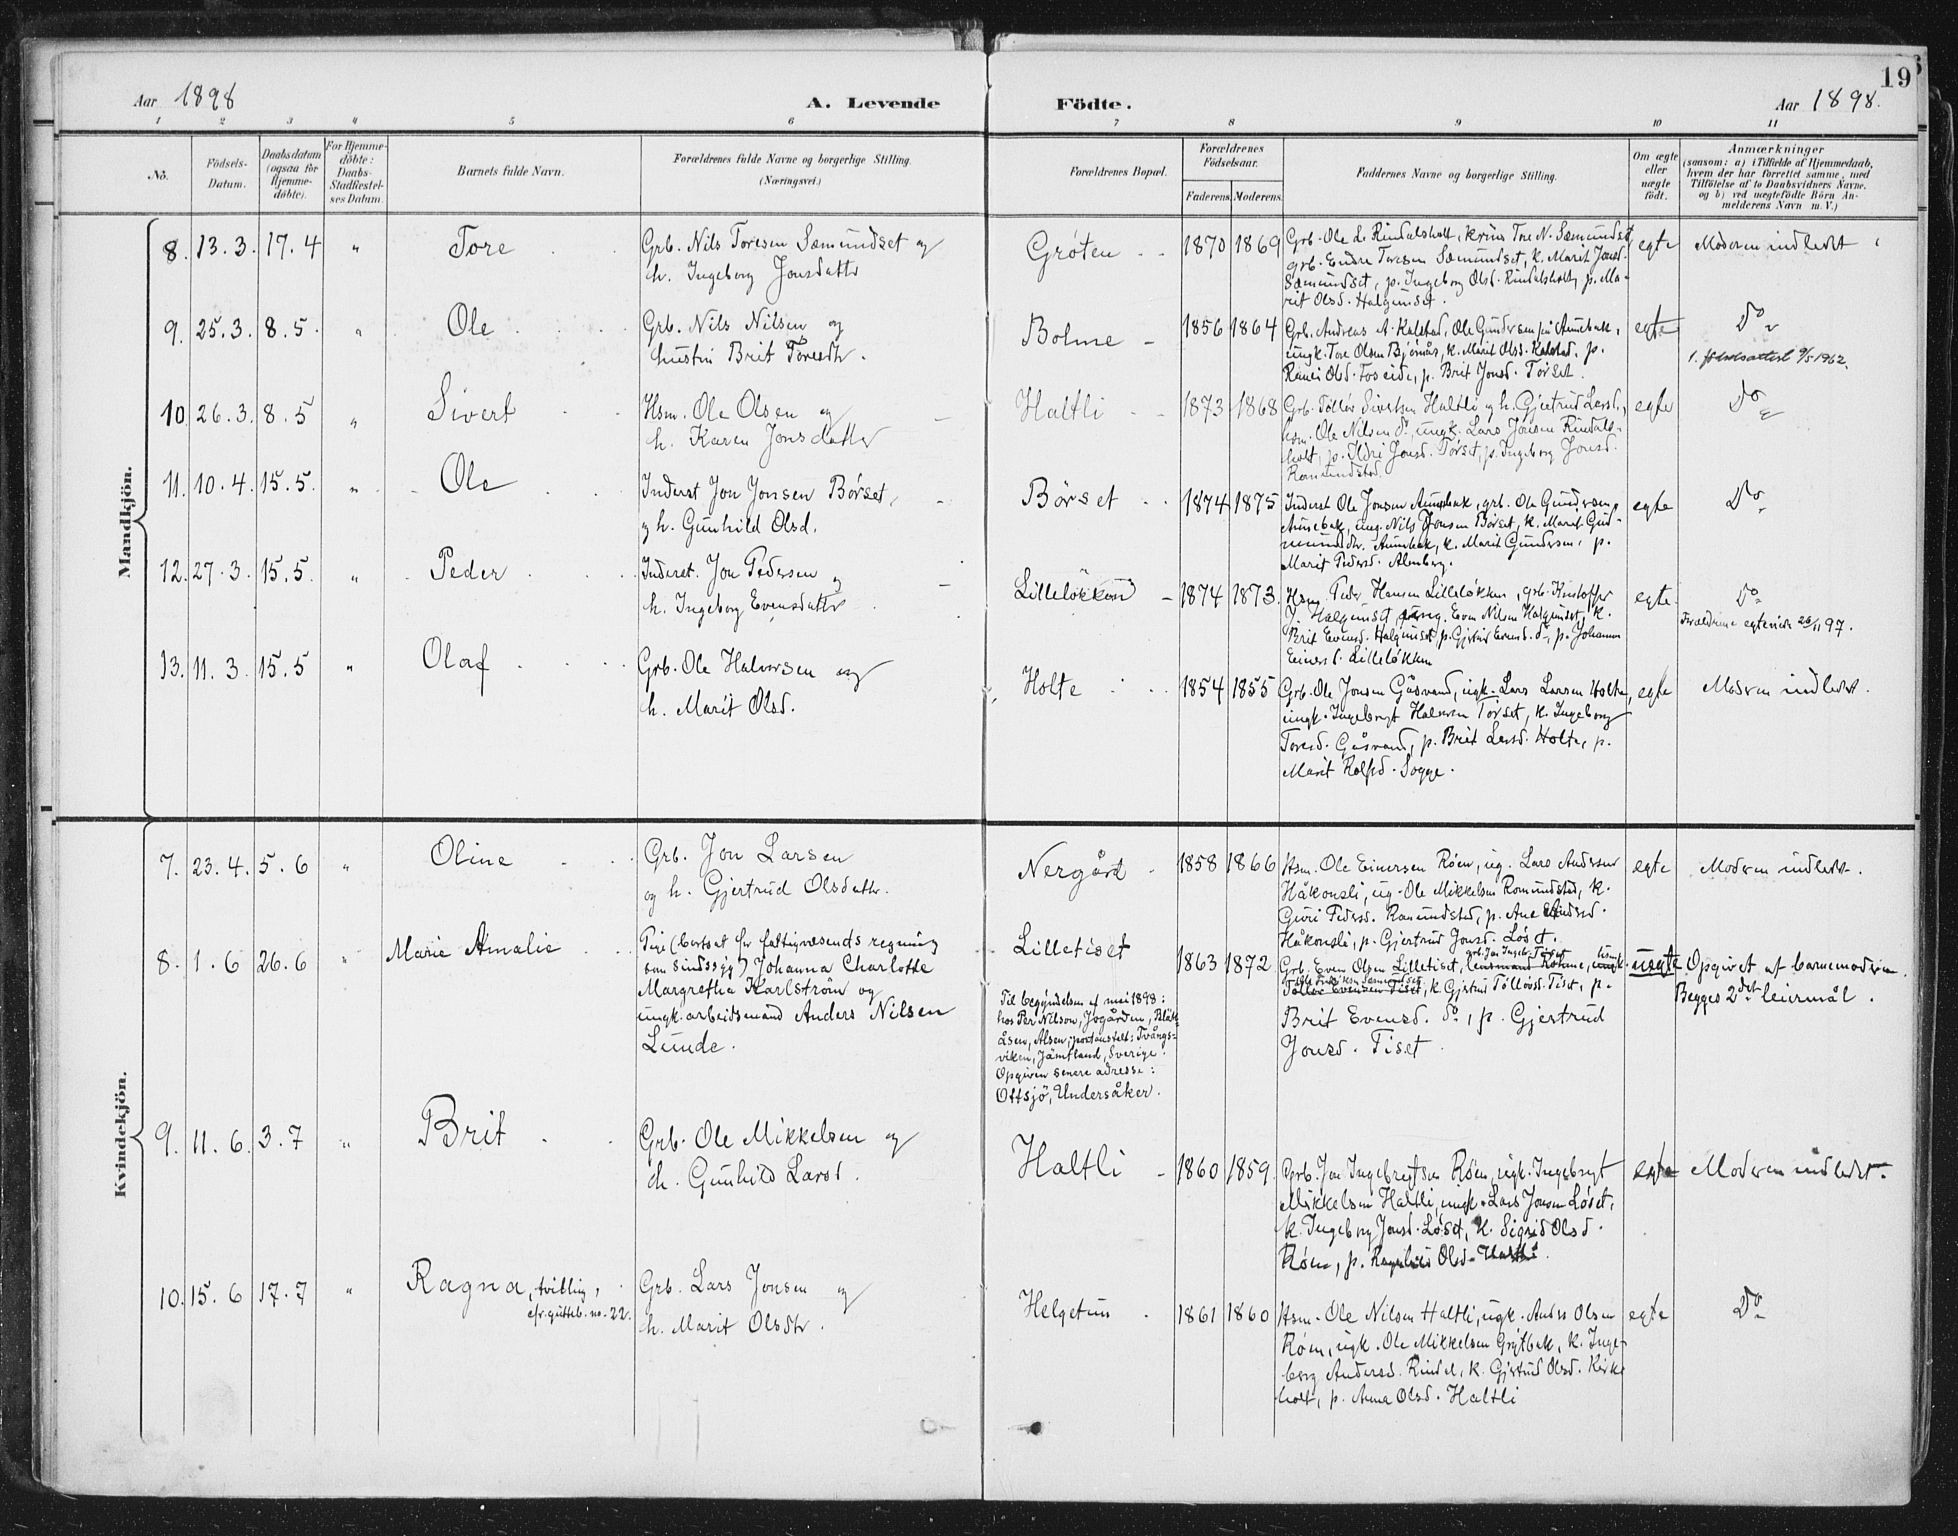 Aar 1898
A. Levende Födte.
Aar 1898.
19
1 2 3 4 5 6 7 8 9 10 11
No.
Födsels-Datum.
Daabsdatum (ogsaa for Hjemmedöbte).
For Hjemmedöbte: Daabs-Stadfæstelses Datum.
Barnets fulde Navn.
Forældrenes fulde Navne og borgerlige Stilling.
(Næringsvei.)
Forældrenes Bopæl.
Forældrenes Födselsaar.
Faderens. Moderens.
Faddernes Navne og borgerlige Stilling.
Om ægte eller uægte födt.
Anmærkninger
(saasom: a) i Tilfælde af Hjemmedaab, hvem der har forrettet samme, med Tilföielse af to Daabsvidners Navne, og b) ved uægtefödte Börn Anmelderens Navn m. V.)
Mandkjön.
8. 13.3. 17.4 " Tore
Grb. Nils Toresen Sæmundset og
h. Ingeborg Jonsdattr
Grøten 1870 1869
Grb. Ole L. Rindalsholt, Tore N. Sæmundset,
grb. Endre Toresen Sæmundset, k. Marit Jonsd.
Sæmundset, p. Ingeborg Olsd. Rindalsholt, p. Ma-
rit Olsd. Halgunset.
egte Moderen indledet
9. 25.3. 8.5. " Ole
Grb. Nils Nilsen og
hustru Brit Toresdtr.
Bolme 1856 1864
Grb. Andreas A. Kalstad, Ole Gundersen Aunebak,
ungk. Tore Olsen Bjørnås, k. Marit Olsd. Kalstad, p.
Olsd. Foseide, p. Brit Jonsd. Tørset.
egte Do
1. fødselsattest 9/5 1962.
10. 26.3. 8.5 " Sivert
Hsm. Ole Olsen og
h. Karen Jonsdatter
Haltli 1873 1868
Grb. Tölløv Sivertsen Haltli og h. Gjertrud Larsd.,
hsm. Ole Nilsen do, ungk. Lars Jonsen Rindals-
holt, p. Ildri Jonsd. Tørset, p. Ingeborg Jonsd.
Romundstad.
egte Do
11. 10.4. 15.5. " Ole
Inderst Jon Jonsen Børset,
og h. Gunhild Olsd.
Børset 1874 1875
Inderst Ole Jonsen Aunebak, grb. Ole Gundersen
Aunebak, ung. Nils Jonsen Børset, k. Marit Gud-
mundsdtr. Aunebak, k. Marit Gundersen, p.
Marit Pedersd. Almberg.
egte Do
12. 27.3. 15.5. " Peder
Inderst. Jon Pedersen og
h. Ingeborg Evensdattr
Lilleløkken 1874 1873.
Hsm. Peder Hansen Lilleløkken, grb. Kristoffer
J. Halgunset, ung. Even Nilsen Halgunset, k.
Brit Evensd. Halgunset, p. Gjertrud Evensd. do, p. Johanna
Einersd. Lilleløkken
egte. Do
Forældrene egteviede 26/11 97.
13. 11.3. 15.5 " Olaf
Grb. Ole Halvorsen og
h. Marit Olsd.
Holte 1854 1855
Grb. Ole Jonsen Gåsvand, ungk. Lars Larsen Holte,
ungk. Ingebrigt Halvorsen Tørset, k. Ingeborg
Toresd. Gåsvand, p. Brit Larsd. Holte, p.
Marit Rolfsd. Sogge.
egte Moderen indledet.
Kvindekjön.
7. 23.4. 5.6 " Oline
Grb. Jon Larsen
og h. Gjertrud Olsdattr.
Nergård 1858 1866
Hsm. Ole Einersen Røen, ug. Lars Andersen
Håkonsli, ug. Ole Mikkelsen Romundstad, k.
Guri Pedersd. Romundstad, p. Ane Andersd.
Håkonsli, p. Gjertrud Jonsd. Løset.
egte Moderen indledet.
8. 1.6 26.6 " Marie Amalie
Pige (bortsat for fattigvæsends regning
som sindssyg) Johanna Charlotte
Margretha Karlström og
ungk. arbeidsmand Anders Nilsen
Lunde.
Lilletiset
Til begyndelsen af mei 1898:
hos Per Nilson, Jogården, Blåk-
åsen, Alsen, postanstalt: Tvångs-
viken, Jämtland, Sverige.
Opgiven senere adresse:
Ottsjö, Undersåker.
1863 1872
Grb. Even Olsen Lilletiset, Lensmand Bohme, ungk.
Tölløv Evensen Tiset, k. Gjertrud Tölløvsd. Tiset, p.
Brit Evensd. do, p. Gjertrud
Jonsd. Tiset.
uegte Opgivet af barnemoderen.
Begges 2det leiermål.
9. 11.6. 3.7 " Brit
Grb. Ole Mikkelsen og
h. Gunhild Larsd.
Haltli 1860 1859.
Grb. Jon Ingebrigtsen Røen, ungk. Ingebrigt
Mikkelsen Haltli, ungk. Lars Jonsen Løset,
k. Ingeborg Jonsd. Løset, k. Sigrid Olsd.
Røen, p. Ragnhild Olsd. Haltli.
egte Moderen indledet.
10. 15.6 17.7 " Ragna, tvilling,
cfr. gutteb. no. 22.
Grb. Lars Jonsen og
h. Marit Olsdtr.
Helgetun 1861 1860
Hsm. Ole Nilsen Haltli, ungk. Anders Olsen
Røen, ungk. Ole Mikkelsen Grytbak, k. Inge-
borg Andersd. Rindal, k. Gjertrud Olsd. Kirke-
holt, p. Anne Olsd. Haltli
egte Do